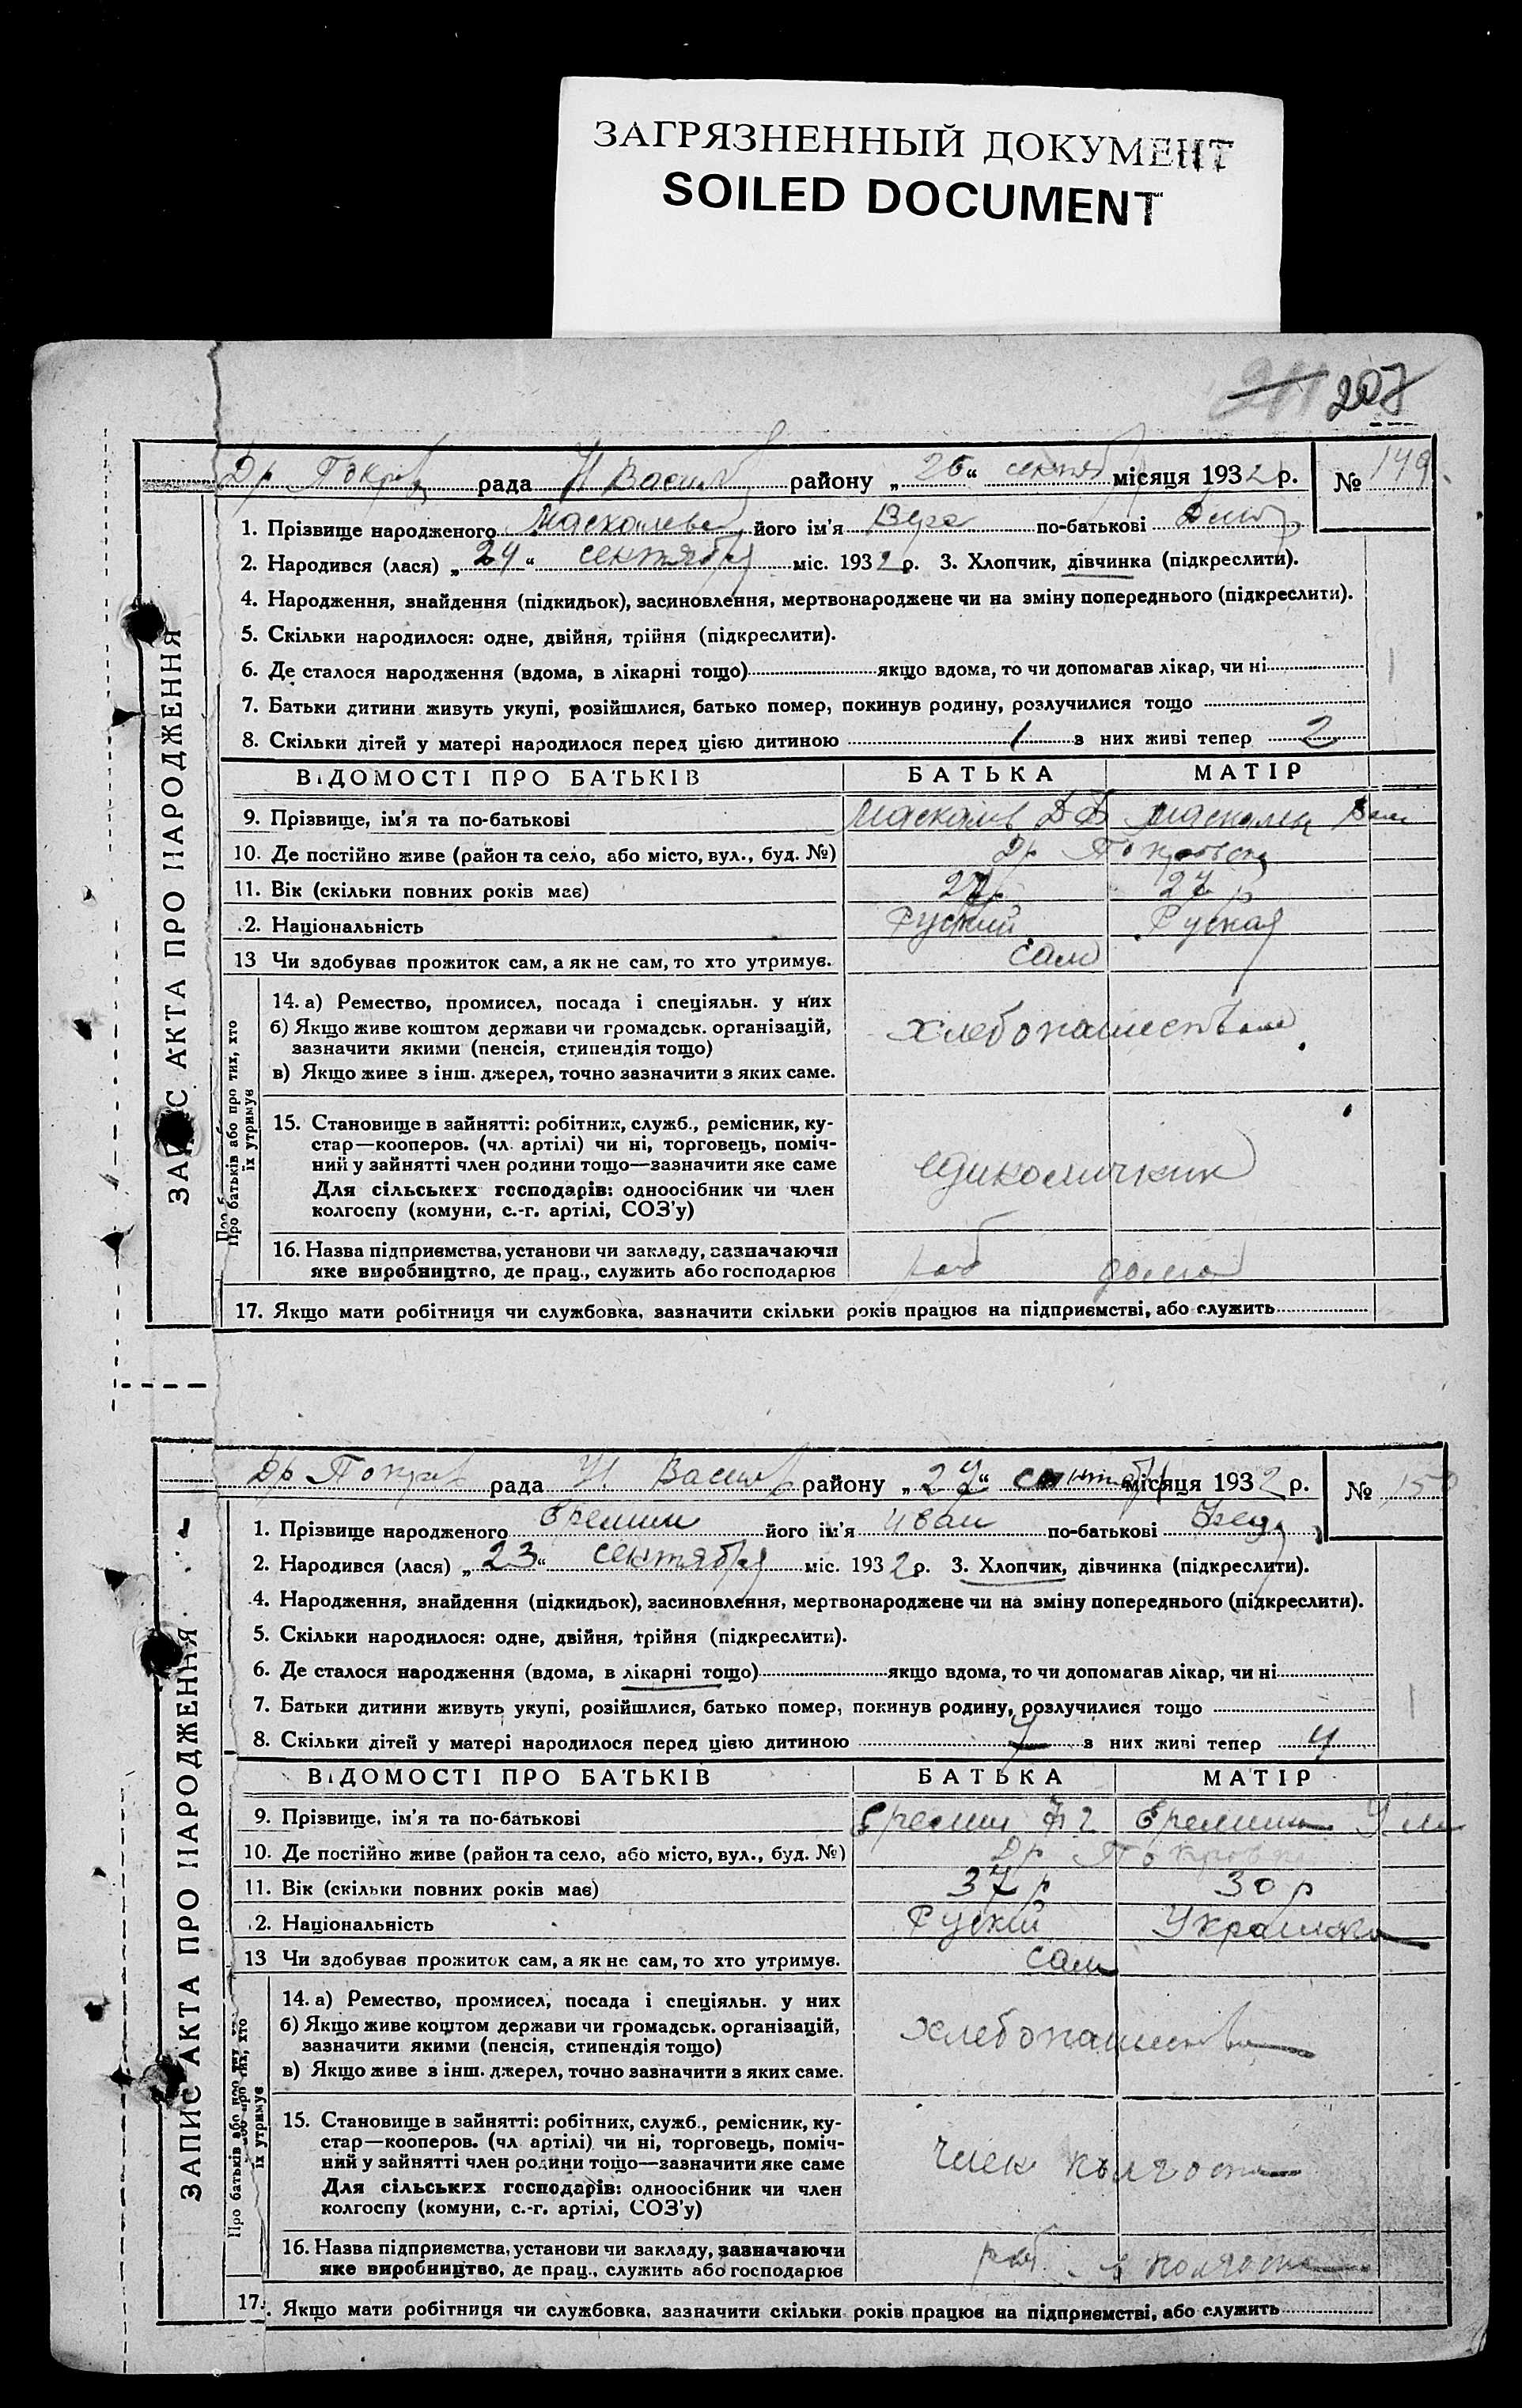 ЗАГРЯЗНЕННЫЙ ДОКУМЕНТ
SOILED DOCUMENT
207
Др Покров рада Н Васил району „26“ сентяб місяця 1932 р. № 149
1. Прізвище народженого Маскалева його ім'я Вера по-батькові
2. Народився (лася) „24“ сентября міс. 1932 р. 3. Хлопчик, дівчинка (підкреслити).
4. Народження, знайдення (підкидьок), засиновлення, мертвонароджене чи на зміну попереднього (підкреслити).
5. Скільки народилося: одне, двійня, трійня (підкреслити).
6. Де сталося народження (вдома, в лікарні тощо) якщо вдома, то чи допомагав лікар, чи ні
7. Батьки дитини живуть укупі, розійшлися, батько помер, покинув родину, розлучилися тощо
8. Скільки дітей у матері народилося перед цією дитиною 1 з них живі тепер 2
ВІДОМОСТІ ПРО БАТЬКІВ БАТЬКА МАТІР
9. Прізвище, ім'я та по-батькові Маскалев
10. Де постійно живе (район та село, або місто, вул., буд. №) Др Покровка
11. Вік (скільки повних років має) 27 р 27 р
.2. Національність Руский Руская
13 Чи здобував прожиток сам, а як не сам, то хто утримув. сам
14. а) Ремество, промисел, посада і спеціяльн. у них
б) Якщо живе коштом держави чи громадськ. організацій,
зазначити якими (пенсія, стипендія тощо)
в) Якщо живе з інш. джерел, точно зазначити з яких саме.
хлебопашество
15. Становище в зайнятті: робітник, служб., ремісник, ку-
стар—кооперов. (чл. артілі) чи ні, торговець, поміч-
ний у зайнятті член родини тощо—зазначити яке саме
Для сільських господарів: одноосібник чи член
колгоспу (комуни, с.-г. артілі, СОЗ'у)
16. Назва підприємства, установи чи закладу, зазначаючи
яке виробництво, де прац., служить або господарює
раб дома
17. Якщо мати робітниця чи службовка, зазначити скільки років працює на підприємстві, або служить
ЗАПИС АКТА ПРО НАРОДЖЕННЯ
Про батьків або про тих, хто
їх утримує
Др Покров рада Н. Васил району „27“ сентября місяця 1932 р. № 150
1. Прізвище народженого Еремин його ім'я Иван по-батькові
2. Народився (лася) „23“ сентября міс. 1932 р. 3. Хлопчик, дівчинка (підкреслити).
4. Народження, знайдення (підкидьок), засиновлення, мертвонароджене чи на зміну попереднього (підкреслити).
5. Скільки народилося: одне, двійня, трійня (підкреслити).
6. Де сталося народження (вдома, в лікарні тощо) якщо вдома, то чи допомагав лікар, чи ні
7. Батьки дитини живуть укупі, розійшлися, батько помер, покинув родину, розлучилися тощо
8. Скільки дітей у матері народилося перед цією дитиною з них живі тепер 4
ВІДОМОСТІ ПРО БАТЬКІВ БАТЬКА МАТІР
9. Прізвище, ім'я та по-батькові Еремин Еремина
10. Де постійно живе (район та село, або місто, вул., буд. №) Др Покровка
11. Вік (скільки повних років має) 37 р 30 р
.2. Національність Руский Украинка
13 Чи здобував прожиток сам, а як не сам, то хто утримув. сам
14. а) Ремество, промисел, посада і спеціяльн. у них
б) Якщо живе коштом держави чи громадськ. організацій,
зазначити якими (пенсія, стипендія тощо)
в) Якщо живе з інш. джерел, точно зазначити з яких саме.
хлебопашество
15. Становище в зайнятті: робітник, служб., ремісник, ку-
стар—кооперов. (чл. артілі) чи ні, торговець, поміч-
ний у зайнятті член родини тощо—зазначити яке саме
Для сільських господарів: одноосібник чи член
колгоспу (комуни, с.-г. артілі, СОЗ'у)
член колгоспа
16. Назва підприємства, установи чи закладу, зазначаючи
яке виробництво, де прац., служить або господарює
раб в колгоспе
17. Якщо мати робітниця чи службовка, зазначити скільки років працює на підприємстві, або служить
ЗАПИС АКТА ПРО НАРОДЖЕННЯ
їх утримує